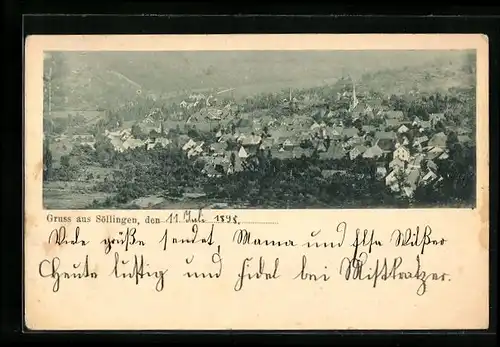 Gruss aus Söllingen, den 11. Juli 1898.
Viele grüße sendet, Mama und Elsa
Heute lustig und fidel bei Mistkratzer.